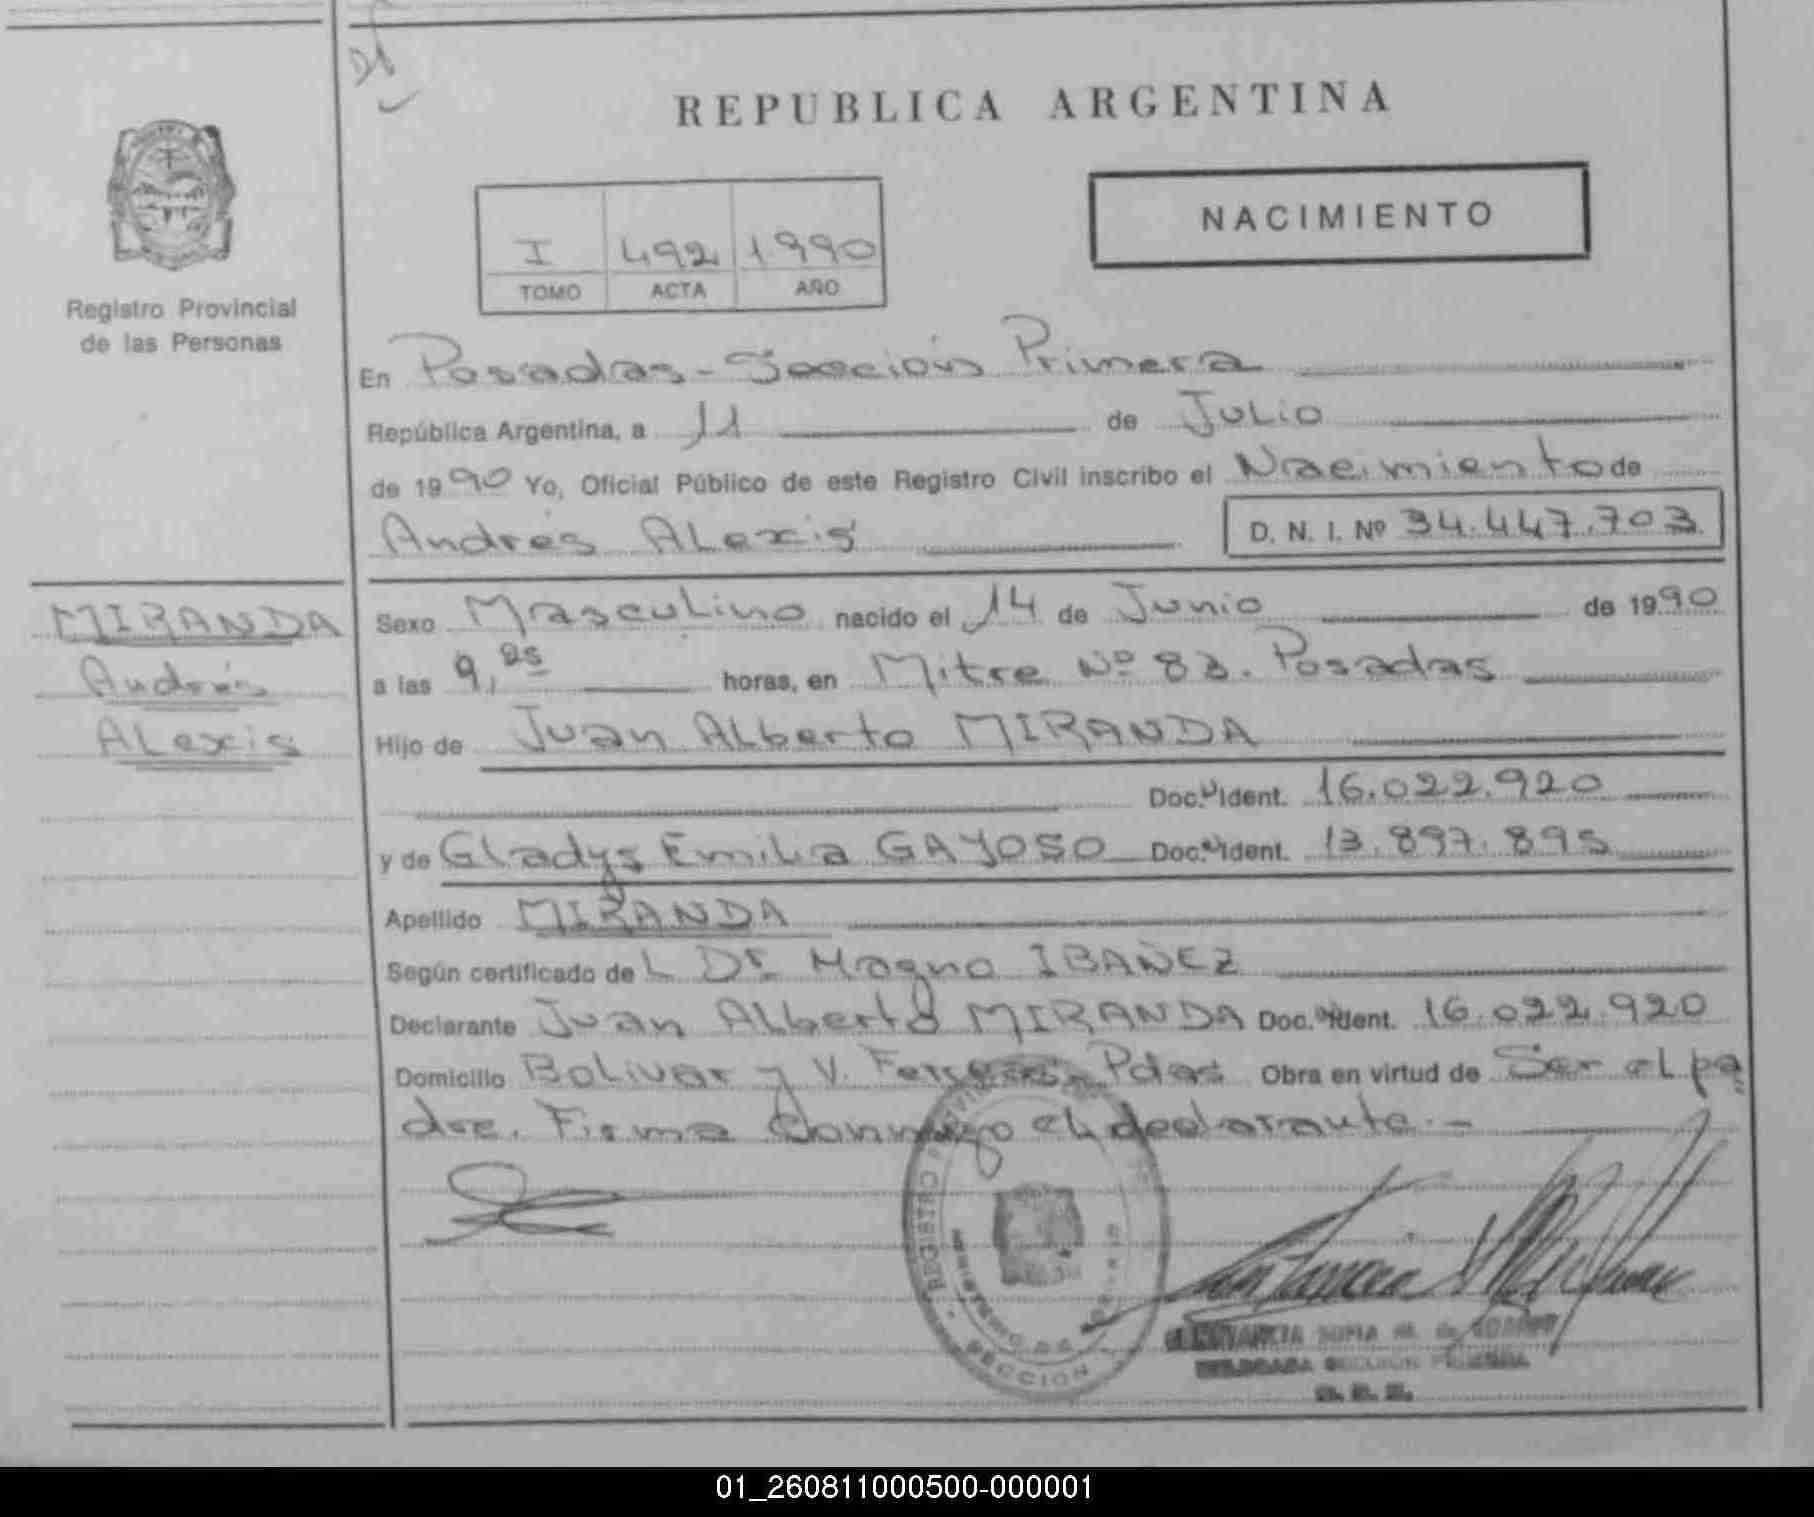 REPUBLICA ARGENTINA
NACIMIENTO
I 492 1990
TOMO ACTA AÑO
Registro Provincial
de las Personas
En Posadas - Sección Primera
República Argentina, a 11 de Julio
de 1990 Yo, Oficial Público de este Registro Civil inscribo el Nacimiento de
Andrés Alexis D. N. I. Nº 34.447.703
MIRANDA
Andrés
Alexis
Sexo Masculino nacido el 14 de Junio de 1990
a las 9,25 horas, en Mitre Nº 83. Posadas
Hijo de Juan Alberto MIRANDA
Doc. Ident. 16.022.920
y de Gladys Emilia GAYOSO Doc. Ident. 13.897.895
Apellido MIRANDA
Según certificado del Dr. Magno IBAÑEZ
Declarante Juan Alberto MIRANDA Doc. Ident. 16.022.920
Domicilio Bolivar y V. Pdas Obra en virtud de Ser el pa
dre. Firma Conmigo el declarante. -
REGISTRO
MINISTERIO DE GOBIERNO
SECCION
SOFIA M. de
SECCION PRIMERA
01_260811000500-000001